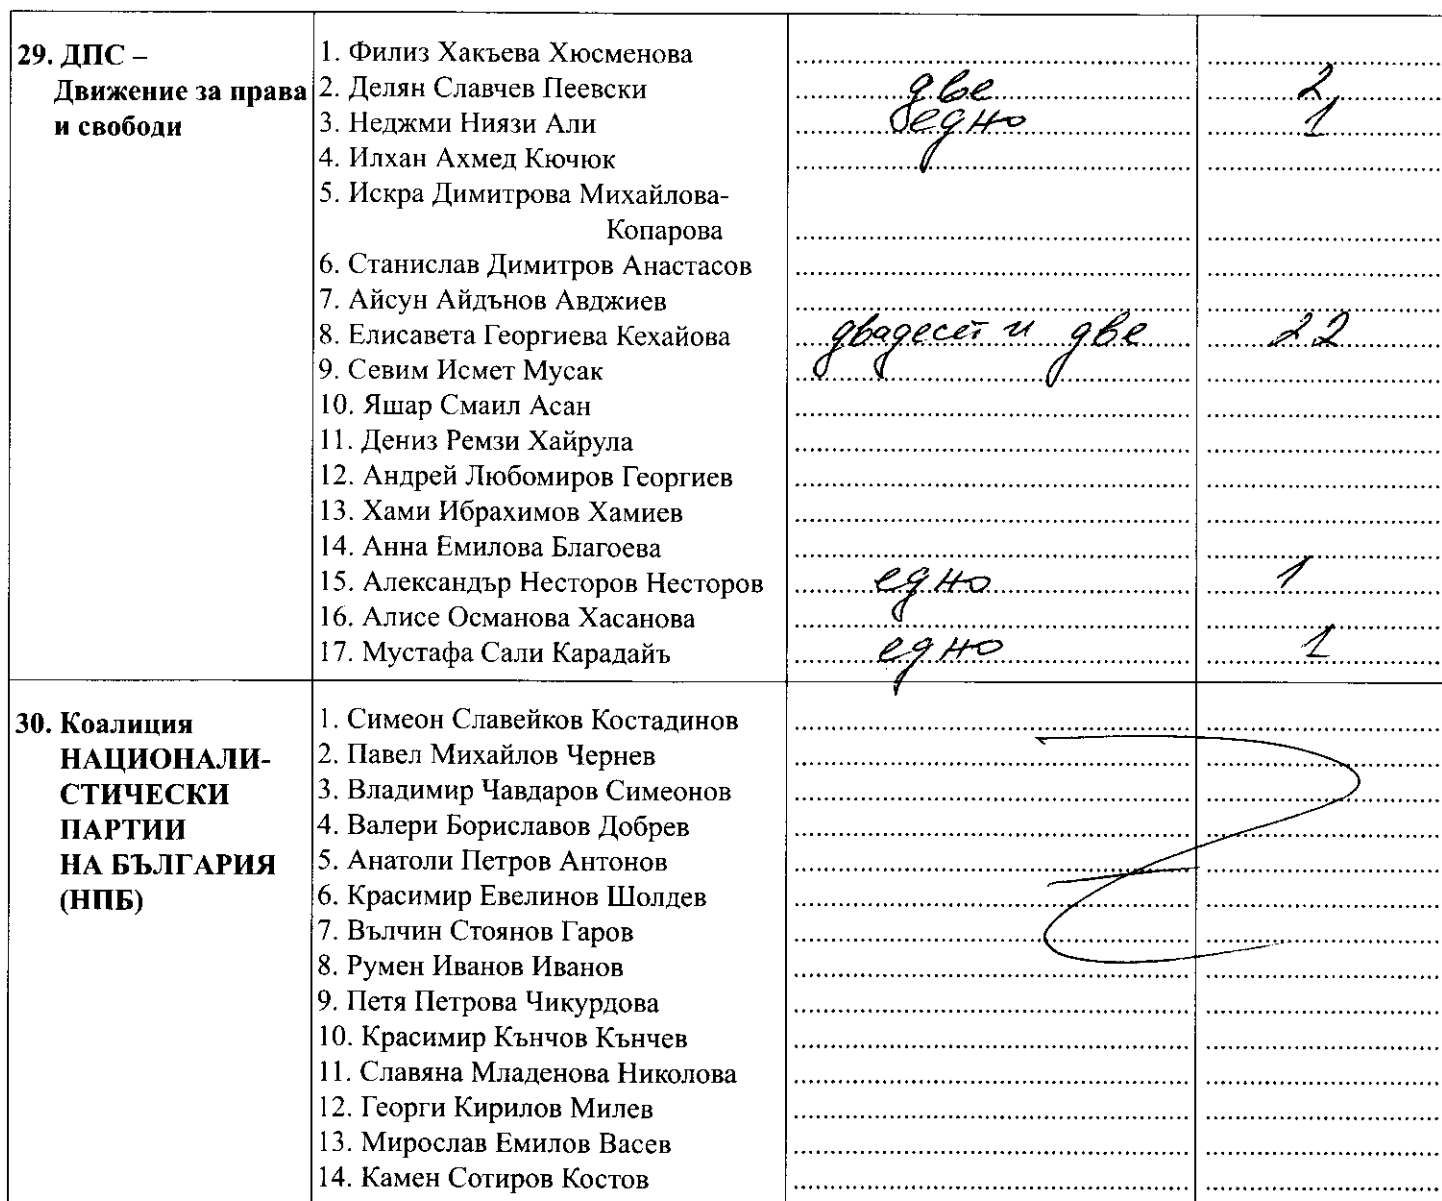 29. ДПС – 1. Филиз Хакъева Хюсменова
Движение за права 2. Делян Славчев Пеевски две 2
и свободи 3. Неджми Ниязи Али едно 1
4. Илхан Ахмед Кючюк
5. Искра Димитрова Михайлова-
Копарова
6. Станислав Димитров Анастасов
7. Айсун Айдънов Авджиев
8. Елисавета Георгиева Кехайова двадесет и две 22
9. Севим Исмет Мусак
10. Яшар Смаил Асан
11. Дениз Ремзи Хайрула
12. Андрей Любомиров Георгиев
13. Хами Ибрахимов Хамиев
14. Анна Емилова Благоева
15. Александър Несторов Несторов едно 1
16. Алисе Османова Хасанова
17. Мустафа Сали Карадайъ едно 1
30. Коалиция 1. Симеон Славейков Костадинов
НАЦИОНАЛИ- 2. Павел Михайлов Чернев
СТИЧЕСКИ 3. Владимир Чавдаров Симеонов
ПАРТИИ 4. Валери Бориславов Добрев
НА БЪЛГАРИЯ 5. Анатоли Петров Антонов
(НПБ) 6. Красимир Евелинов Шолдев
7. Вълчин Стоянов Гаров
8. Румен Иванов Иванов
9. Петя Петрова Чикурдова
10. Красимир Кънчов Кънчев
11. Славяна Младенова Николова
12. Георги Кирилов Милев
13. Мирослав Емилов Васев
14. Камен Сотиров Костов